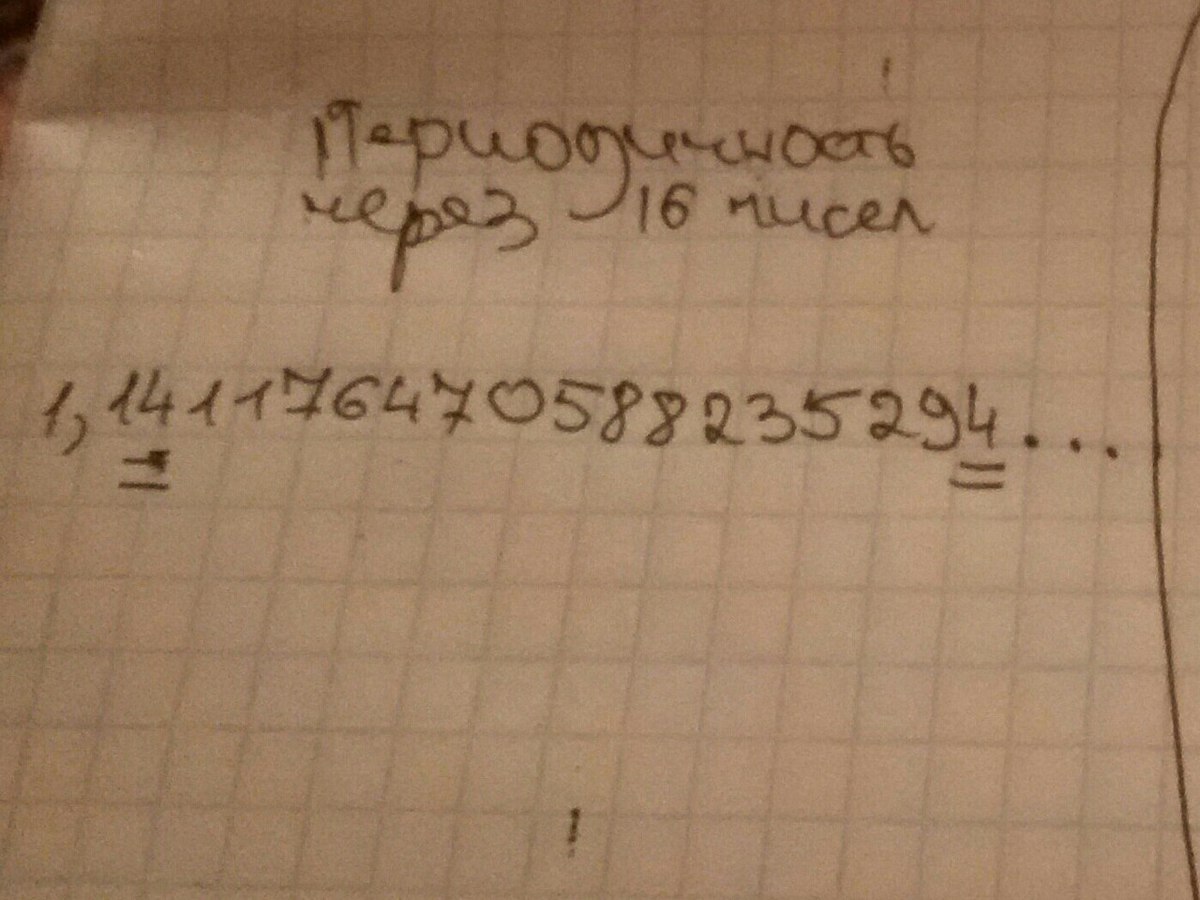 Периодичность
через 16 чисел
1,141176470588235294...